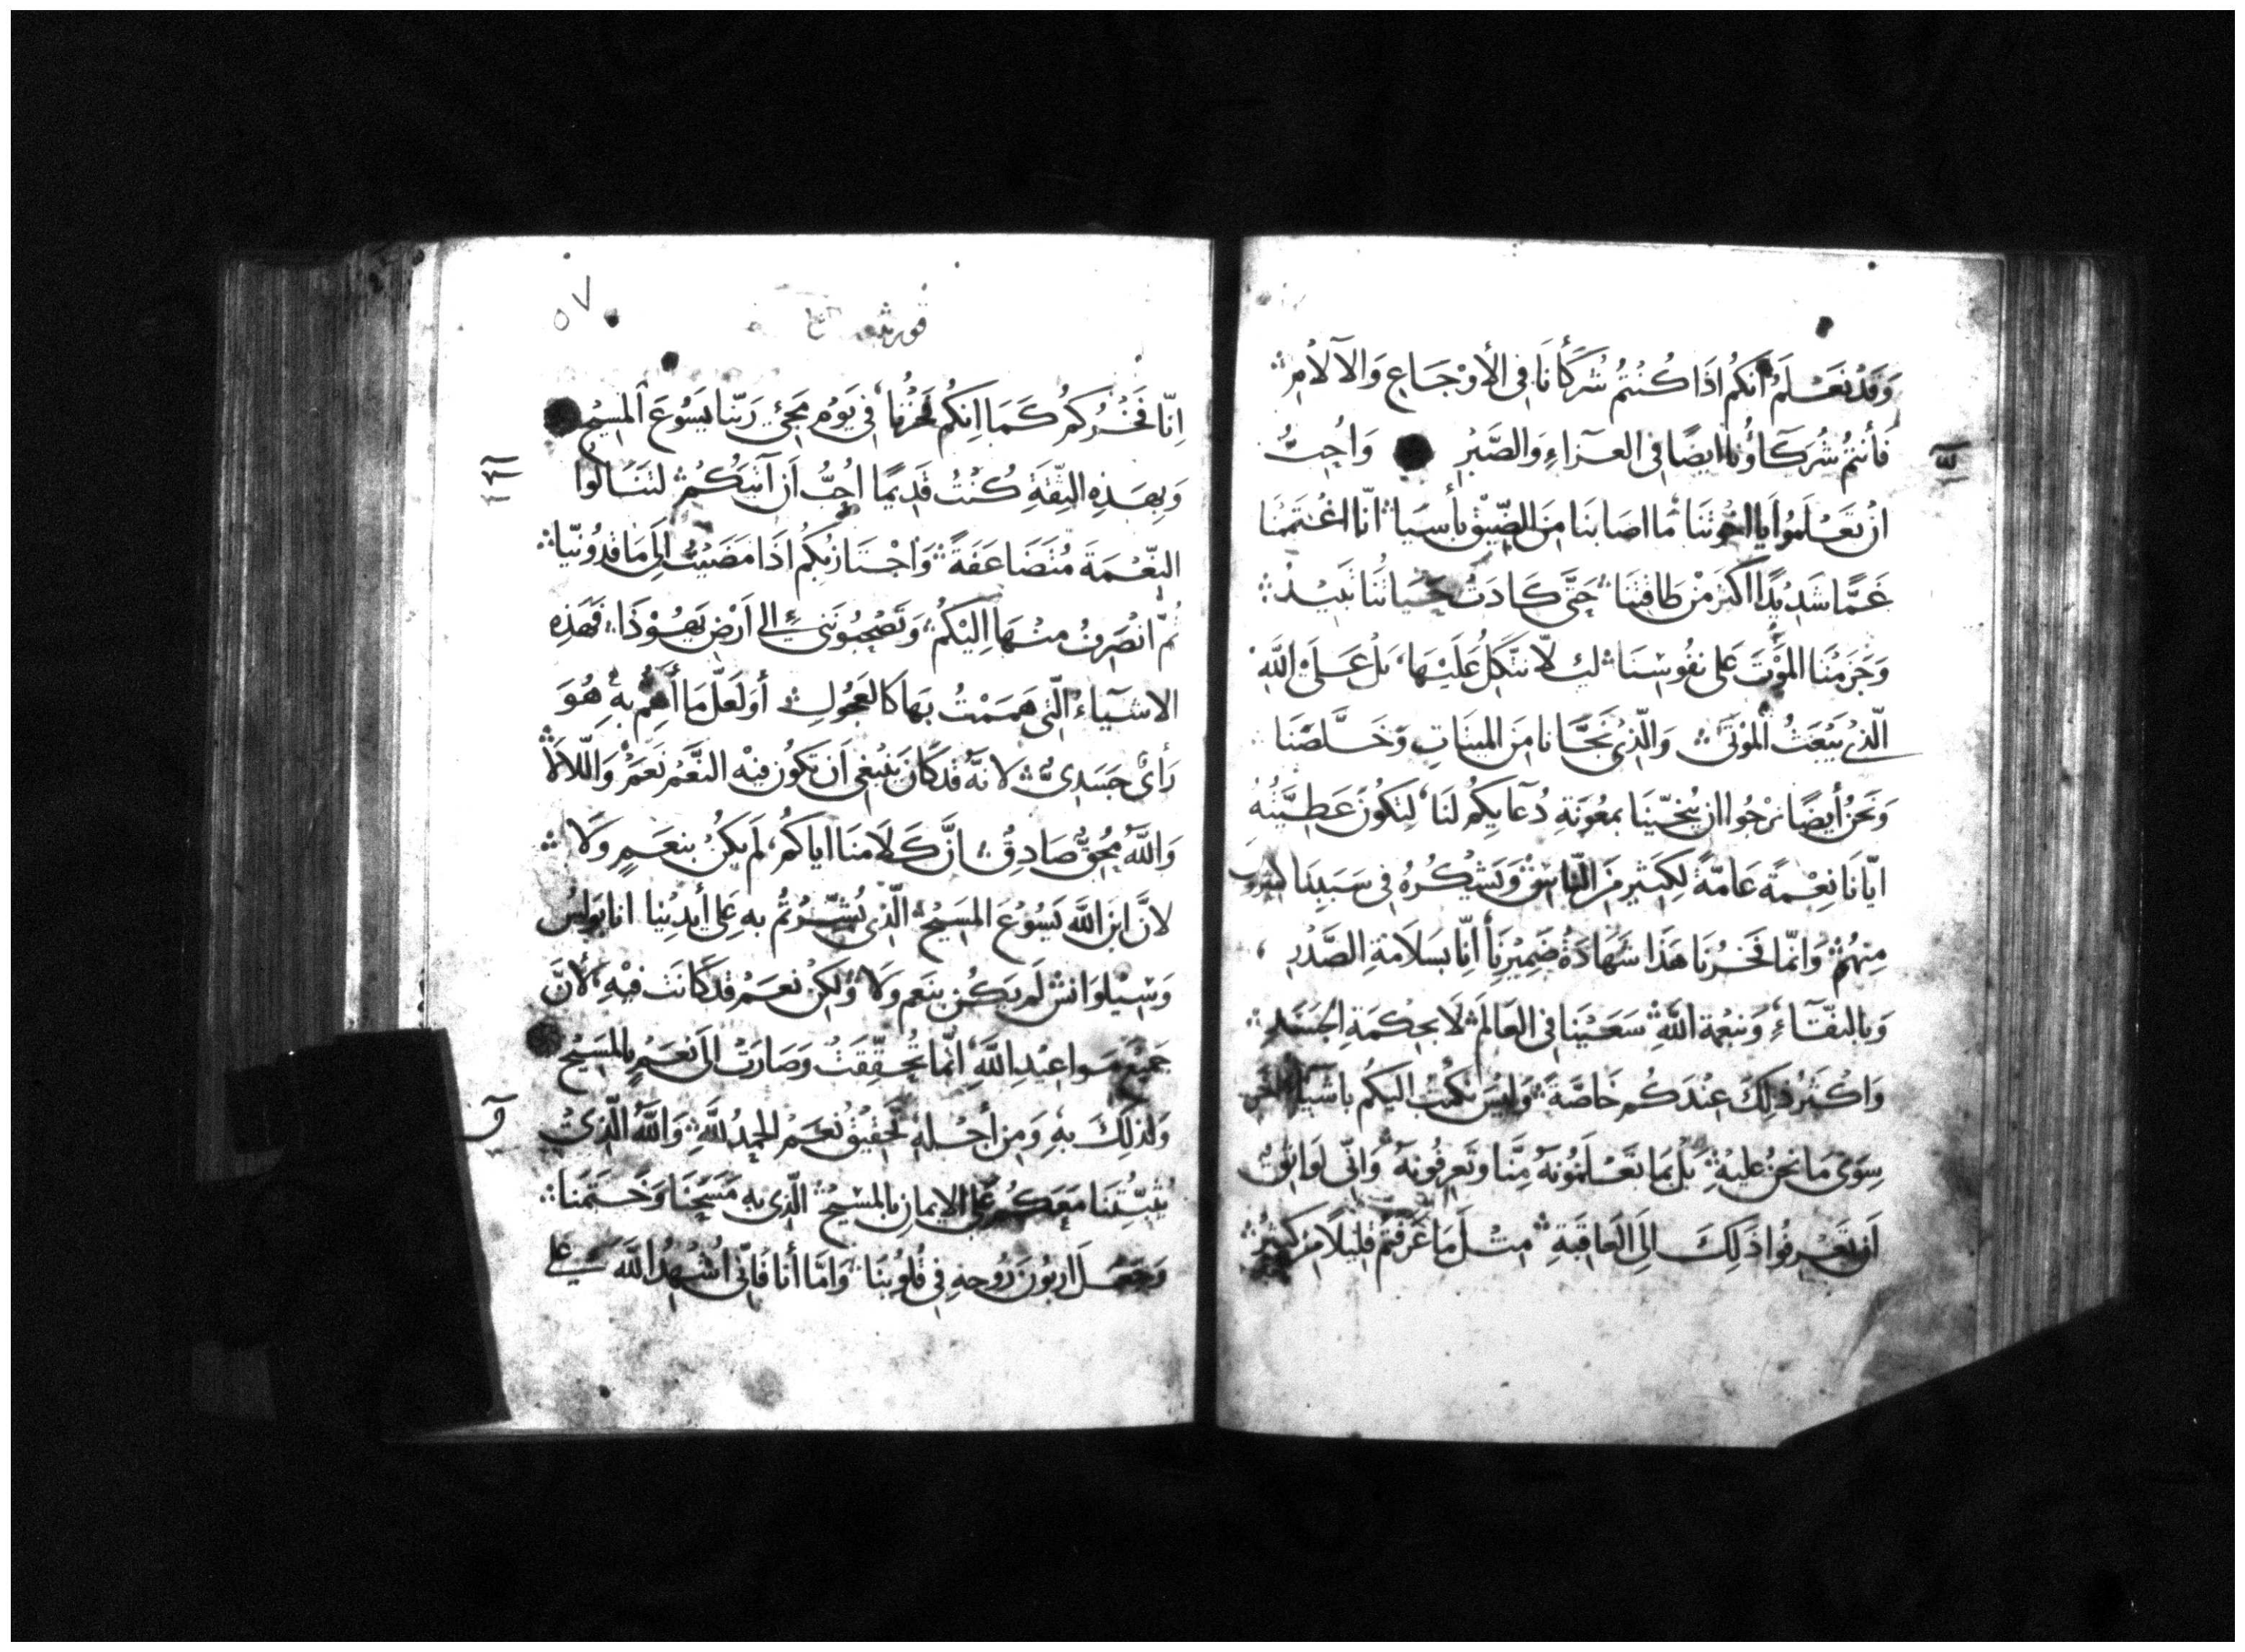 وَقَدْ نَعْلَمُ اَنكُم اذَا كُنْتُمْ شُرَكَأنَا فى الأوْجَاعِ وَالآلامِ
فَأنتُمْ شُرَكَآؤُنا ايضًا فى العَزاءِ وَالصَّبْرِ وَاُحِبُّ
انْ تَعْلَمُوا يَا اخْوتَنَا مَا اصَابنَا مِنَ الضِّيْق بأسيَا انّا اغْتَمَمْنَا
غَمًّا شَدِيْدًا اكثَرَ مِنْ طَاقتِنَا حَتَّى كَادَتْ حَيَاتُنَا تَبيْدُ
وَجَزمْنَا المَوْتَ عَلى نفُوسِنَا لِكى لاّ نتَّكِلُ عَلَيْهَا، بَلْ عَلَى اللَّهِ
الّذى يَبْعَثُ الْمَوْتَى وَالّذِى نَجَّانا مِنَ الميتَاتِ وَخَلَّصَنَا
وَنَحْنُ أيضًا نَرْجُوا ان يُنجّيْنَا بمَعُوْنَةِ دُعَآيِكُم لَنَا، لِتَكُوْنَ عَطِيَّتُهُ
ايّانَا نِعْمَةً عَامَّةً لِكَثِيرٍ مِّنَ النّاسِ وَيَشْكُرُهُ فى سَبَبِنَا كثير
مِنْهُمْ وَانمّا فَخْرُنَا هَذَا شَهَادَةُ ضَمِيْرِنَا أنّا بسَلَامَةِ الصَّدْرِ ،
وَبالنقَاءِ وَنعْمَةِ اللَّهِ سَعَيْنَا فى العَالَمِ لَا بحِكْمَةِ الجَسَدِ
وَاكْثَرُ ذلِكَ عِنْدَكُم خَاصَّةً وَلَيْسَ نكْتُبُ اليَكُم باشْيَآءَ اخَر
سِوَى مَا نحْنُ عليْهِ بَلْ بمَا تَعْلَمُوْنَهُ مِنَّا وَتَعرِفُونهُ وَانّى لَوَاثِقٌ
اَن تَعْرِفُوا ذَلِكَ الِىَ العَاقِبَةِ مِثْلَ مَا عَرَفْتُم قلِيلًا مِن كَثِيْرٍ
٥٧
انّا فَخْرُكُم كَمَا انكُم فَخْرُنا فى يَوْمِ مَجِئِ رَبّنا يَسُوْعَ المَسِيْح
وَبِهَذِهِ الثِّقَةِ كُنْتُ قَدِيْمًا اُحِبُّ اَن آتيَكُمْ لتَنَالُوا
النِّعْمَةَ مُتَضَاعَفَةً وَاْجْتَازُ بكُم اذَا مَضَيْتُ الِى مَاقدُونيّا
ثُمّ انْصَرِفُ مِنْهَا اِليْكُمْ وَتَصْحَبُونَنى الى اَرْضِ يَهُوْذَا فَهَذِهِ
الاشيَآءُ الّتى هَمَمْتُ بهَا كَالعَجُولِ أوَلعَلّ مَا أَهُمُّ بهِ هُوَ
رَأىٌ جَسَدِىٌّ لانهُ قدكَانَ يَنْبَغِى اَن تكُون فيْهِ النَّعَمْ نَعَمْ وَاللّالَا
وَاللَّهُ مُحِقٌّ صَادِقٌ انَّ كَلَامَنَا اياكُم، لَم يَكُنْ بنعَمٍ وَلَا
لانَّ ابنَ اللَّه يَسُوْعَ المَسِيْحَ الّذى بُشِّرْتُمْ بهِ عَلى أيدِيْنا انا بولسُ
وَسِيْلوَانسْ لَم يَكُن بنَعَم وَلَا وَلَكِنْ نعَمْ قدكَانَتْ فيْهِ لأَنَّ
جَمِيْعَ مَواعِيْدِ اللَّهِ انّما تُحُقِّقَتْ وَصَارَتْ الىَ نعَمْ بالمَسِيْحِ
وَلذلِكَ بهِ وَمِن أجْلهِ تَحْقِيْقُ نَعَمْ الحَمْدُ للَّهِ وَاللَّهُ الّذِىْ
يُثبّتُنَا مَعَكُم عَلى الايمَانِ بالمَسِيْحِ الّذِى بهِ مَسَحَنَا وَخَتمَنا
وَجَعَلَ اربُونَ رُوحِهِ فِى قلُوْبنَا وَامَّا أنا فَانّى اُشْهِدُ اللَّهَ عَلى